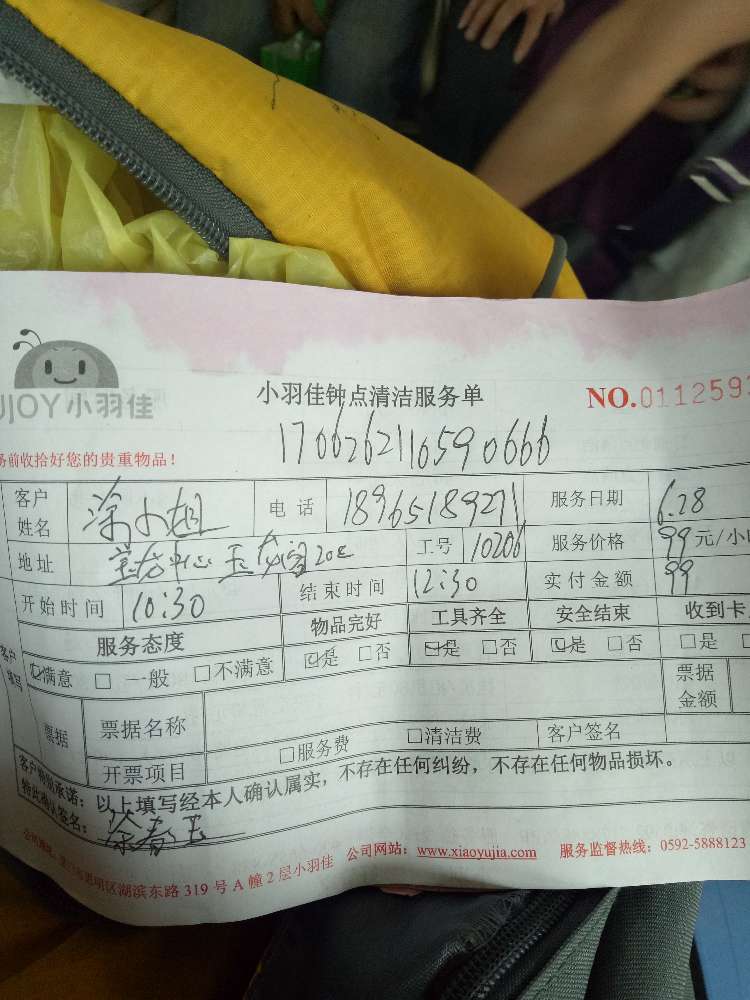 UJOY小羽佳
小羽佳钟点清洁服务单
NO.0112593
务前收拾好您的贵重物品！
1706262116590666
客户姓名 涂小姐 电话 18965189271 服务日期 6.28
地址 中心 20E 工号 10206 服务价格 99元/小
开始时间 10:30 结束时间 12:30 实付金额 99
客户填写 服务态度 物品完好 工具齐全 安全结束 收到卡
☑满意 □一般 □不满意 ☑是 □否 ☑是 □否 ☑是 □否 □是
票据 票据名称 票据金额
开票项目 □服务费 □清洁费 客户签名
客户特别承诺：以上填写经本人确认属实，不存在任何纠纷，不存在任何物品损坏。
特此确认签名：
思明区湖滨东路319号A幢2层小羽佳 公司网站：www.xiaoyujia.com 服务监督热线：0592-5888123